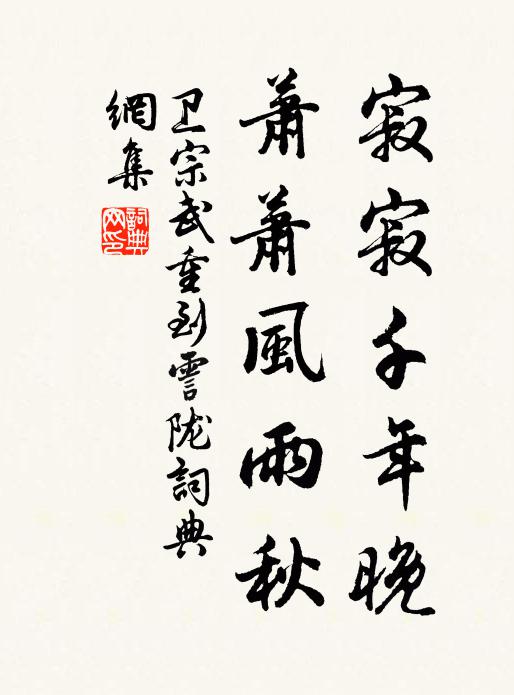 寂寂千年晚
蕭蕭風雨秋
卫宗武重到雲陇詞典
網集
詞典
网印